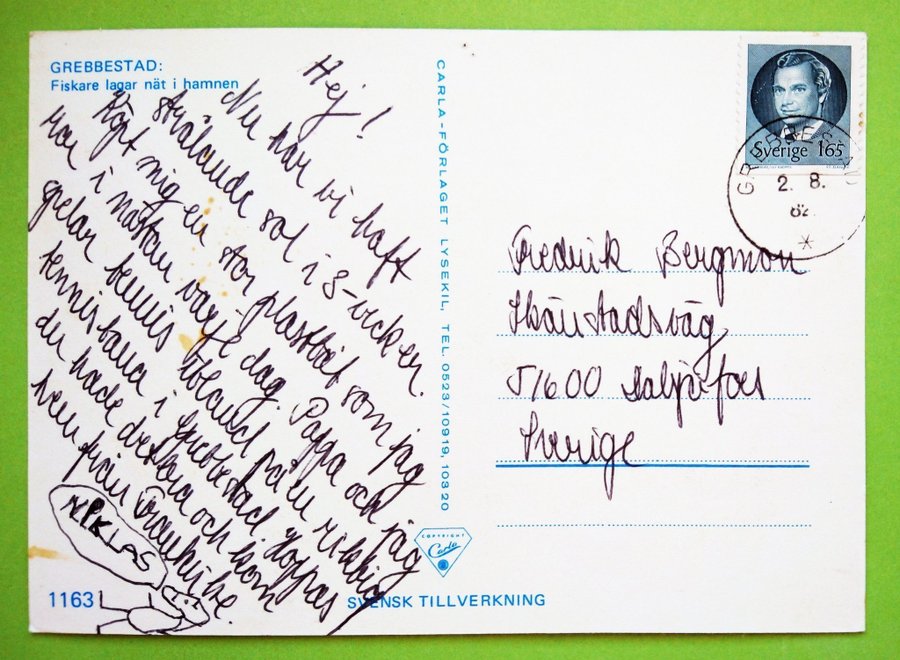 GREBBESTAD:
Fiskare lagar nät i hamnen
Hej!
Nu har vi haft
strålande sol i 3-veckor.
Köpt mig en stor plastbåt som jag
ror i nästan varje dag. Pappa och jag
spelar tennis ibland på en riktig
tennisbana i Grebbestad. Hoppas
du hade det bra och kom
hem från Frankrike.
NIKLAS
1163
SVENSK TILLVERKNING
CARLA-FÖRLAGET LYSEKIL, TEL. 0523/10919, 10320
COPYRIGHT
Carla
Sverige 165
GREBBESTAD
2. 8.
82
Fredrik Bergman
Skänstadsväg
51600 Dalsjöfors
Sverige